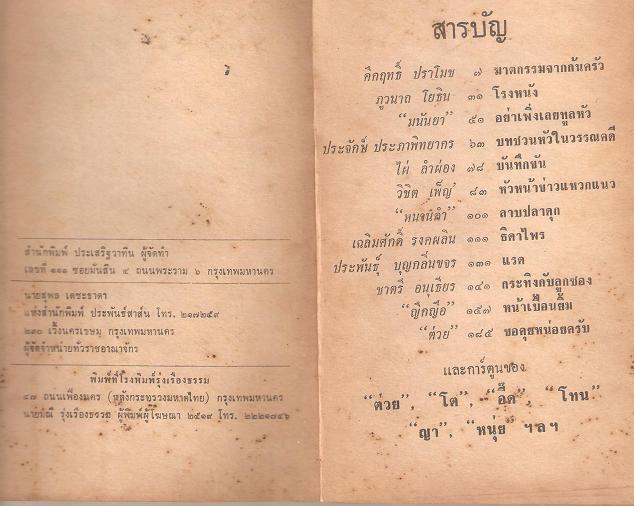 สำนักพิมพ์ ประเสริฐวาทิน ผู้จัดทำ
เลขที่ ๑๑๑ ซอยมันสิน ๔ ถนนพระราม ๖ กรุงเทพมหานคร
นายสุพล เตชะธาดา
แห่งสำนักพิมพ์ ประพันธ์สาส์น โทร. ๒๑๗๒๕๙
๒๙๐ เวิ้งนครเขษม กรุงเทพมหานคร
ผู้จัดจำหน่ายทั่วราชอาณาจักร
พิมพ์ที่โรงพิมพ์รุ่งเรืองธรรม
๔๗ ถนนเฟื่องนคร (หลังกระทรวงมหาดไทย) กรุงเทพมหานคร
นายมณี รุ่งเรืองธรรม ผู้พิมพ์ผู้โฆษณา ๒๕๑๙ โทร. ๒๒๒๑๗๔๖
สารบัญ
คึกฤทธิ์ ปราโมช ๗ ฆาตกรรมจากก้นครัว
ภูวนาถ โยธิน ๓๑ โรงหนัง
“มนันยา” ๕๑ อย่าเพิ่งเลยทูลหัว
ประจักษ์ ประภาพิทยากร ๖๓ บทชวนหัวในวรรณคดี
ไผ่ ลำผ่อง ๗๘ บันทึกขัน
วิชิต เพ็ญ ๘๓ หัวหน้าข่าวแหวกแนว
๑๐๑ ลาบปลาดุก
เฉลิมศักดิ์ รงคผลิน ๑๑๑ ธิดาไพร
ประพันธุ์ บุญกลิ่นขจร ๑๓๑ แรด
ชาตรี อนุเธียร ๑๔๑ กระทิงกับลูกซอง
“ญี่กญือ” ๑๕๗ หน้าเปื้อนยิ้ม
“ต่วย” ๑๘๕ ขอคุยหน่อยครับ
และการ์ตูนของ
“ต่วย”, “โต”, “อี๊ด”, “โทน”
“ญา”, “หนุ่ย” ฯลฯ